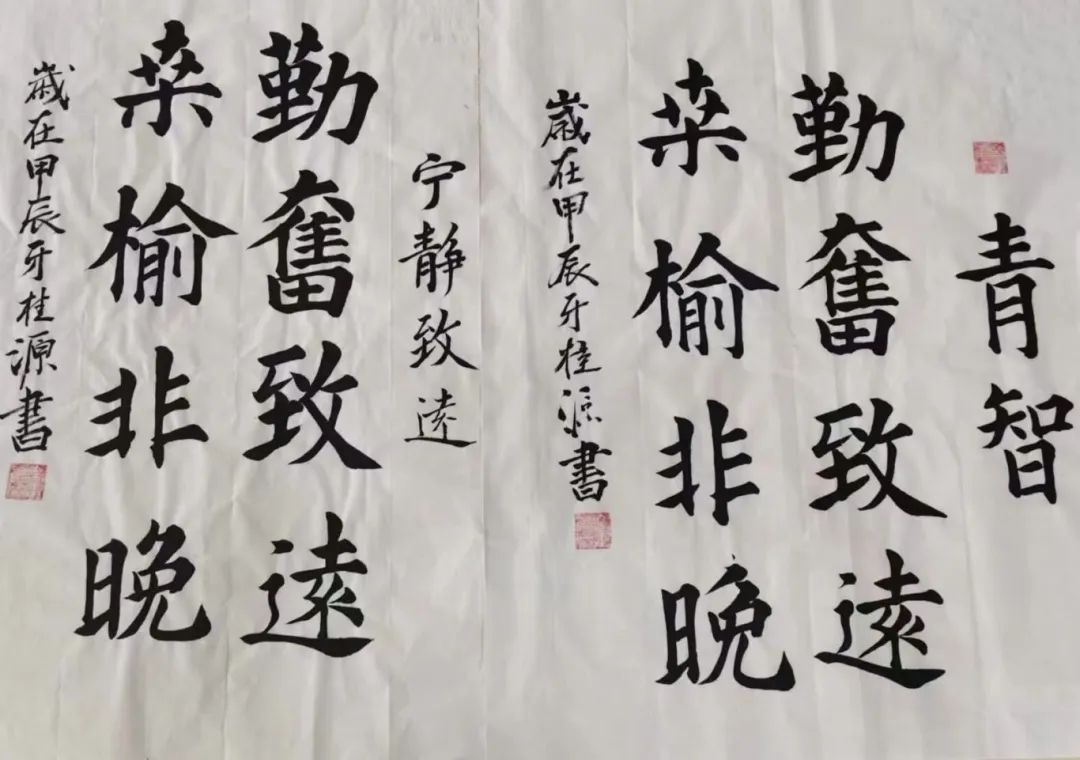 青智
勤奮致遠
桒榆非晚
歲在甲辰牙桂源書
宁靜致遠
勤奮致遠
桒榆非晚
歲在甲辰牙桂源書